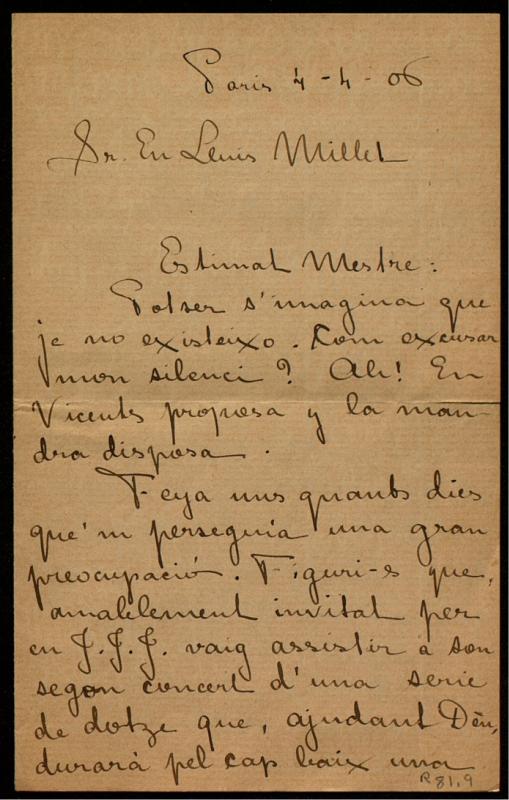 Paris 4-4-06
Sr. En Lluis Millet
Estimat Mestre:
Potser s'imagina que
ja no existeixo. Com excusar
mon silenci? Ah! En
Vicents proposa y la man-
dra disposa.
Feya uns quants dies
que'm perseguia una gran
preocupació. Figuri-s que,
amablement invitat per
en J.J.J. vaig assistir á son
segon concert d'una serie
de dotze que, ajudant Deu,
durará pel cap baix una
R 81,9